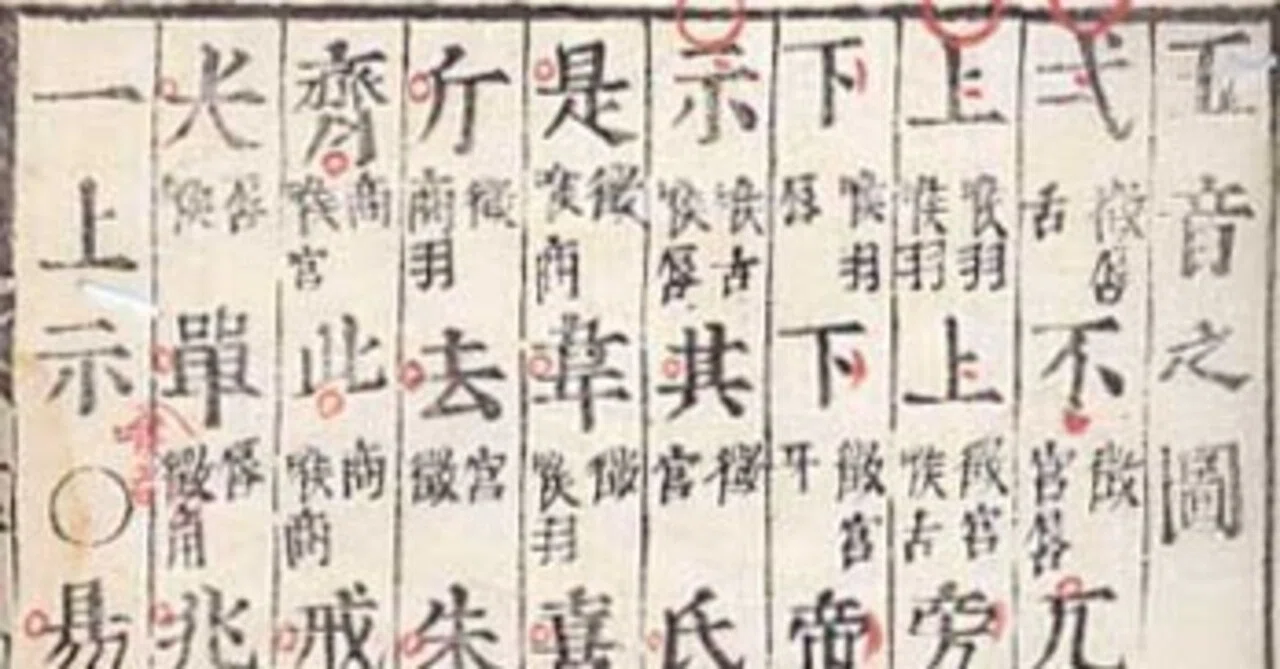 五音之圖
弌徵舌不徵宮亢
上喉羽喉羽上徵宮喉舌旁
下喉羽唇下徵宮牙帝
示喉舌喉唇其徵宮氏
是徵喉商韋徵喉羽喜
斤徵商羽去宮徵朱
齊商喉宮此商喉商戒
唇喉單唇徵角兆
一上示〇易